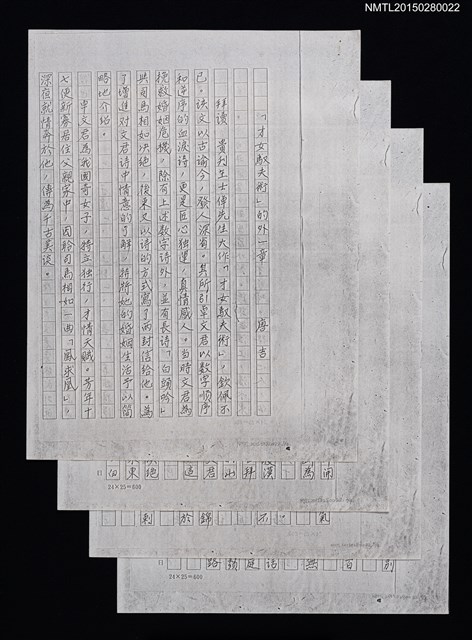 NMTL20150280022
「才女馭夫術」的外一章
唐吉
拜讀 貴刊生士傅先生大作「才女馭夫術」,欽佩不
已。該文以古諭今,發人深省。其所引卓文君以數字順序
和逆序的血淚詩,更是匠心獨運,真情感人。當時文君為
挽救婚姻危機,除有上述数字詩外,並有長詩「白頭吟」
與司馬相如決絕,後來又以詩的方式寫了兩封信給他。為
了增進對文君詩中情意的了解,特將她的婚姻生活予以簡
略地介紹。
卓文君為我國奇女子,特立独行,才情天賦。芳年十
七便新寡居住父親家中,因聆司馬相如一曲「鳳求凰」,
深夜就情奔於他,傳為千古美談。
24×25=600
24×25=600